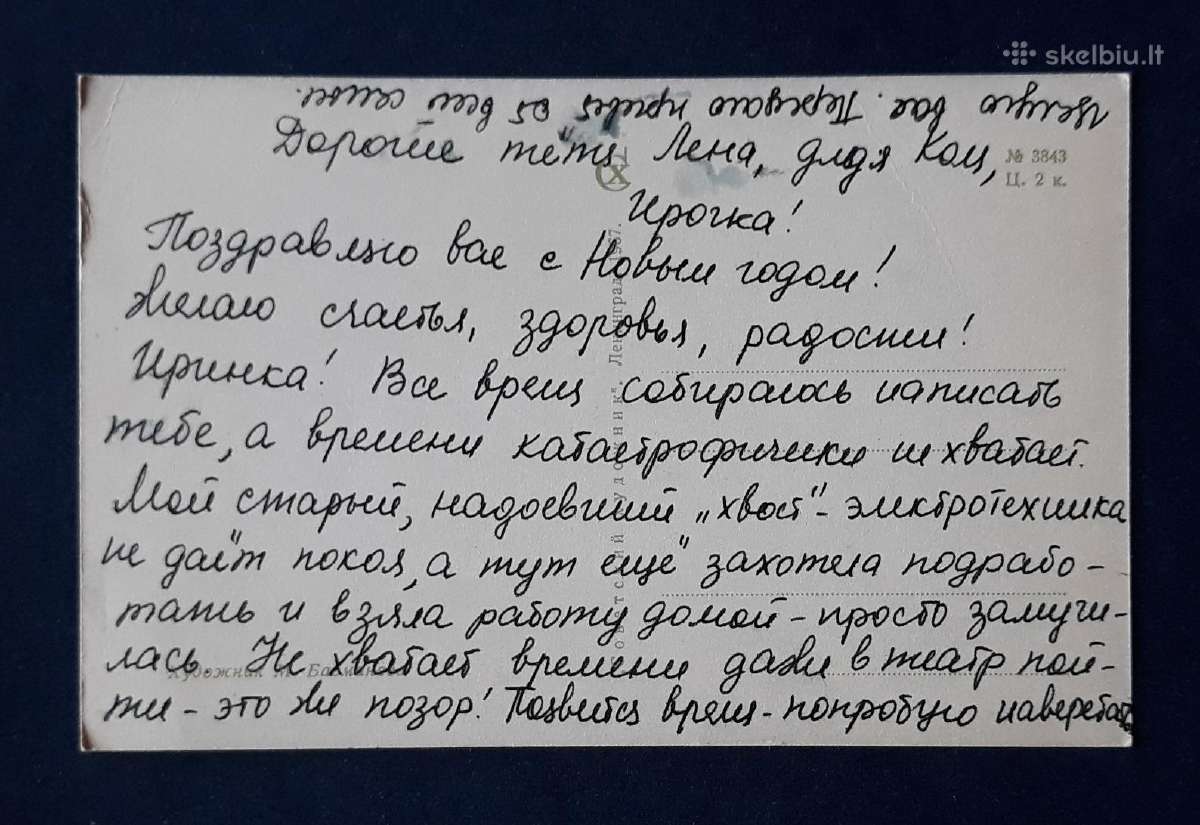 skelbiu.lt
Целую вас. Передаю привет от всей семьи.
Дорогие тётя Лена, дядя Коля,
№ 3843
Ц. 2 к.
Ирочка!
Поздравляю вас с Новым годом!
Желаю счастья, здоровья, радости!
Иринка! Все время собиралась написать
тебе, а времени катастрофически не хватает.
Мой старый, надоевший „хвост" - электротехника
не даёт покоя, а тут ещё захотела подрабо-
тать и взяла работу домой - просто замучи-
лась. Не хватает времени даже в театр пой-
ти - это же позор! Появится время - попробую наверстать
Художник М.
Советский художник". Ленинград